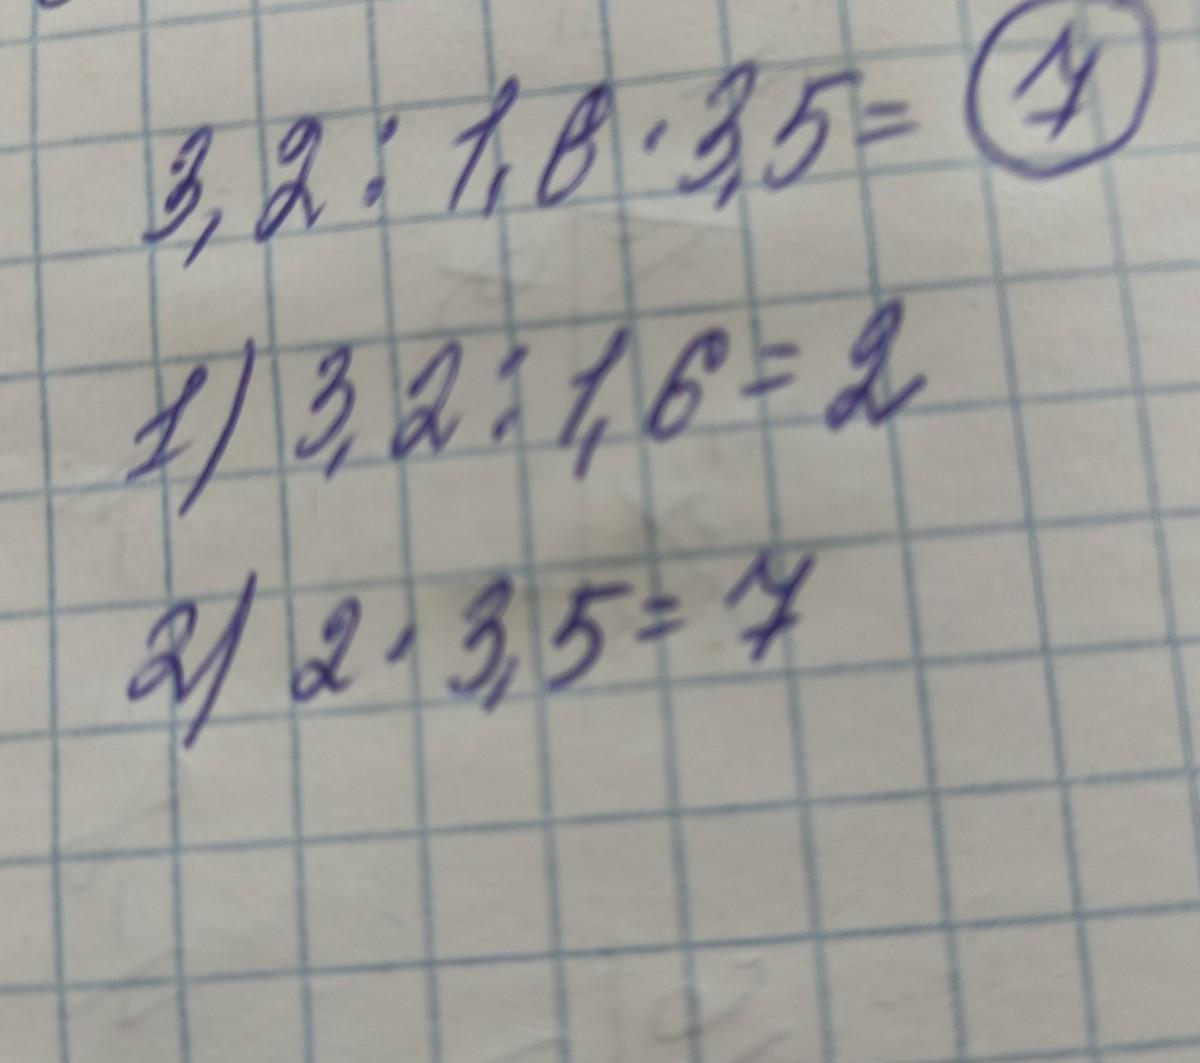 3,2 : 1,6 · 3,5 = 7
1) 3,2 : 1,6 = 2
2) 2 · 3,5 = 7